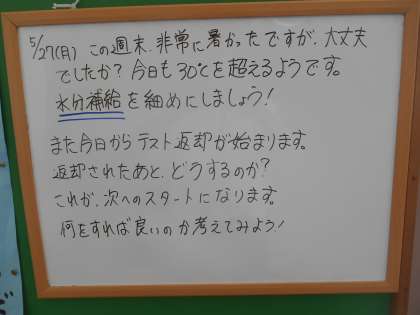 5/27(月) この週末、非常に暑かったですが、大丈夫
でしたか？今日も30℃を超えるようです。
水分補給を細めにしましょう！
また今日からテスト返却が始まります。
返却されたあと、どうするのか？
これが、次へのスタートになります。
何をすれば良いのか考えてみよう！